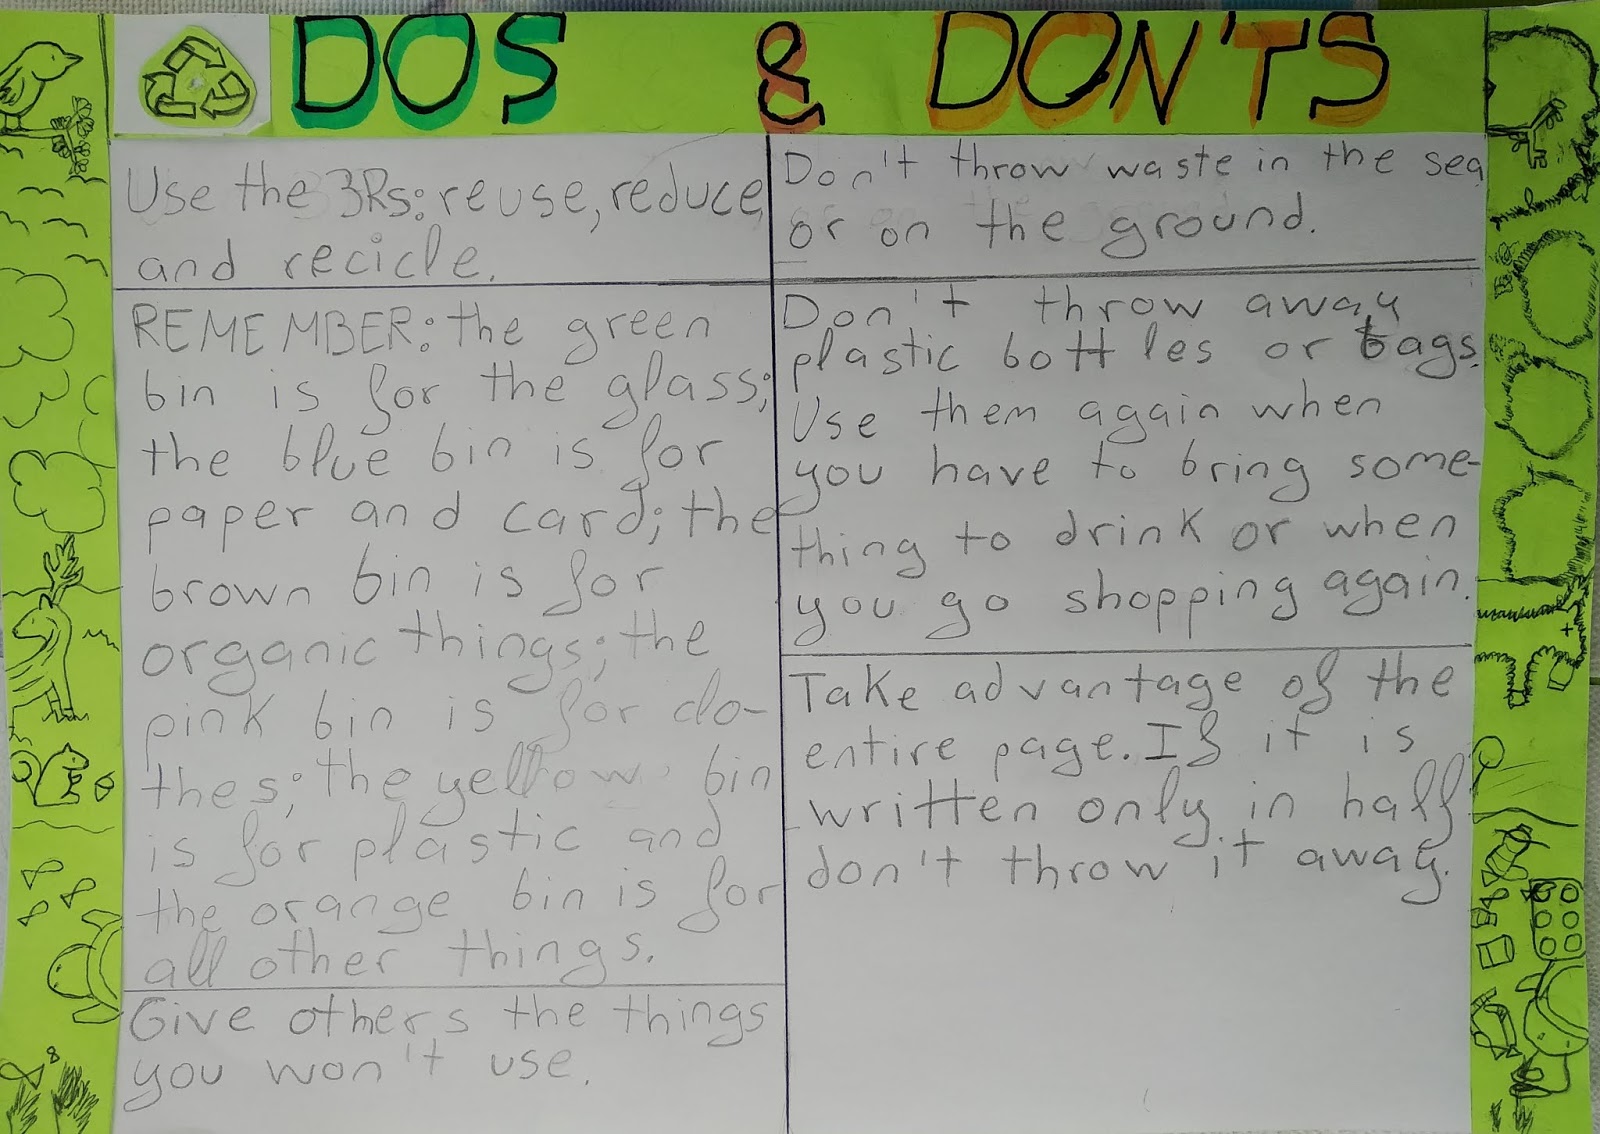 DOS & DON'TS
Use the 3Rs: reuse, reduce,
and recicle.
REMEMBER: the green
bin is for the glass;
the blue bin is for
paper and card; the
brown bin is for
organic things; the
pink bin is for clo-
thes; the yellow bin
is for plastic and
the orange bin is for
all other things.
Give others the things
you won't use.
Don't throw waste in the sea
or on the ground.
Don't throw away
plastic bottles or bags.
Use them again when
you have to bring some-
thing to drink or when
you go shopping again.
Take advantage of the
entire page. If it is
written only in half
don't throw it away.